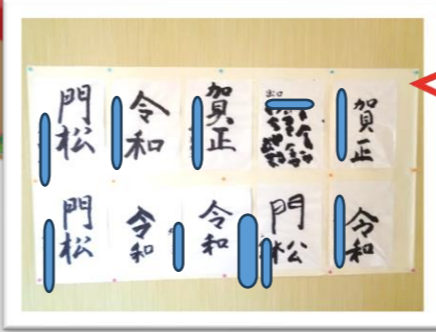 門松
令和
賀正
出口
賀正
門松
令和
令和
門松
令和